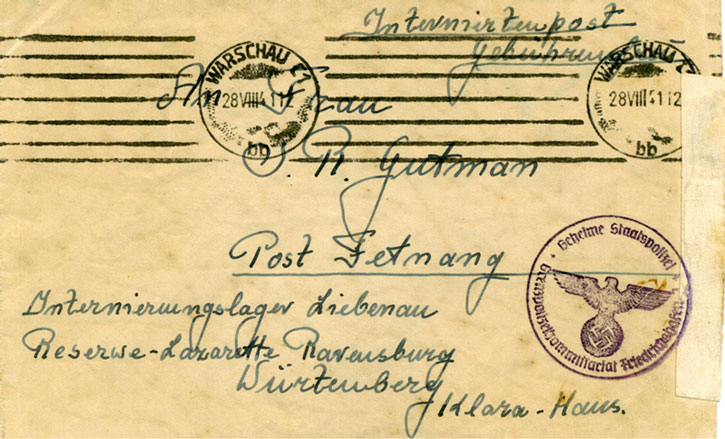 Interniertenpost
Gebührenfrei
WARSCHAU C1
28 VIII 41 12
bb
WARSCHAU C1
28 VIII 41 12
bb
An Frau
S. R. Gutman
Post Tetnang
Internierungslager Liebenau
Reserwe-Lazarette Ravensburg
Würtemberg
Klara-Haus.
Geheime Staatspolizei
Grenzpolizeikommissariat Friedrichshafen